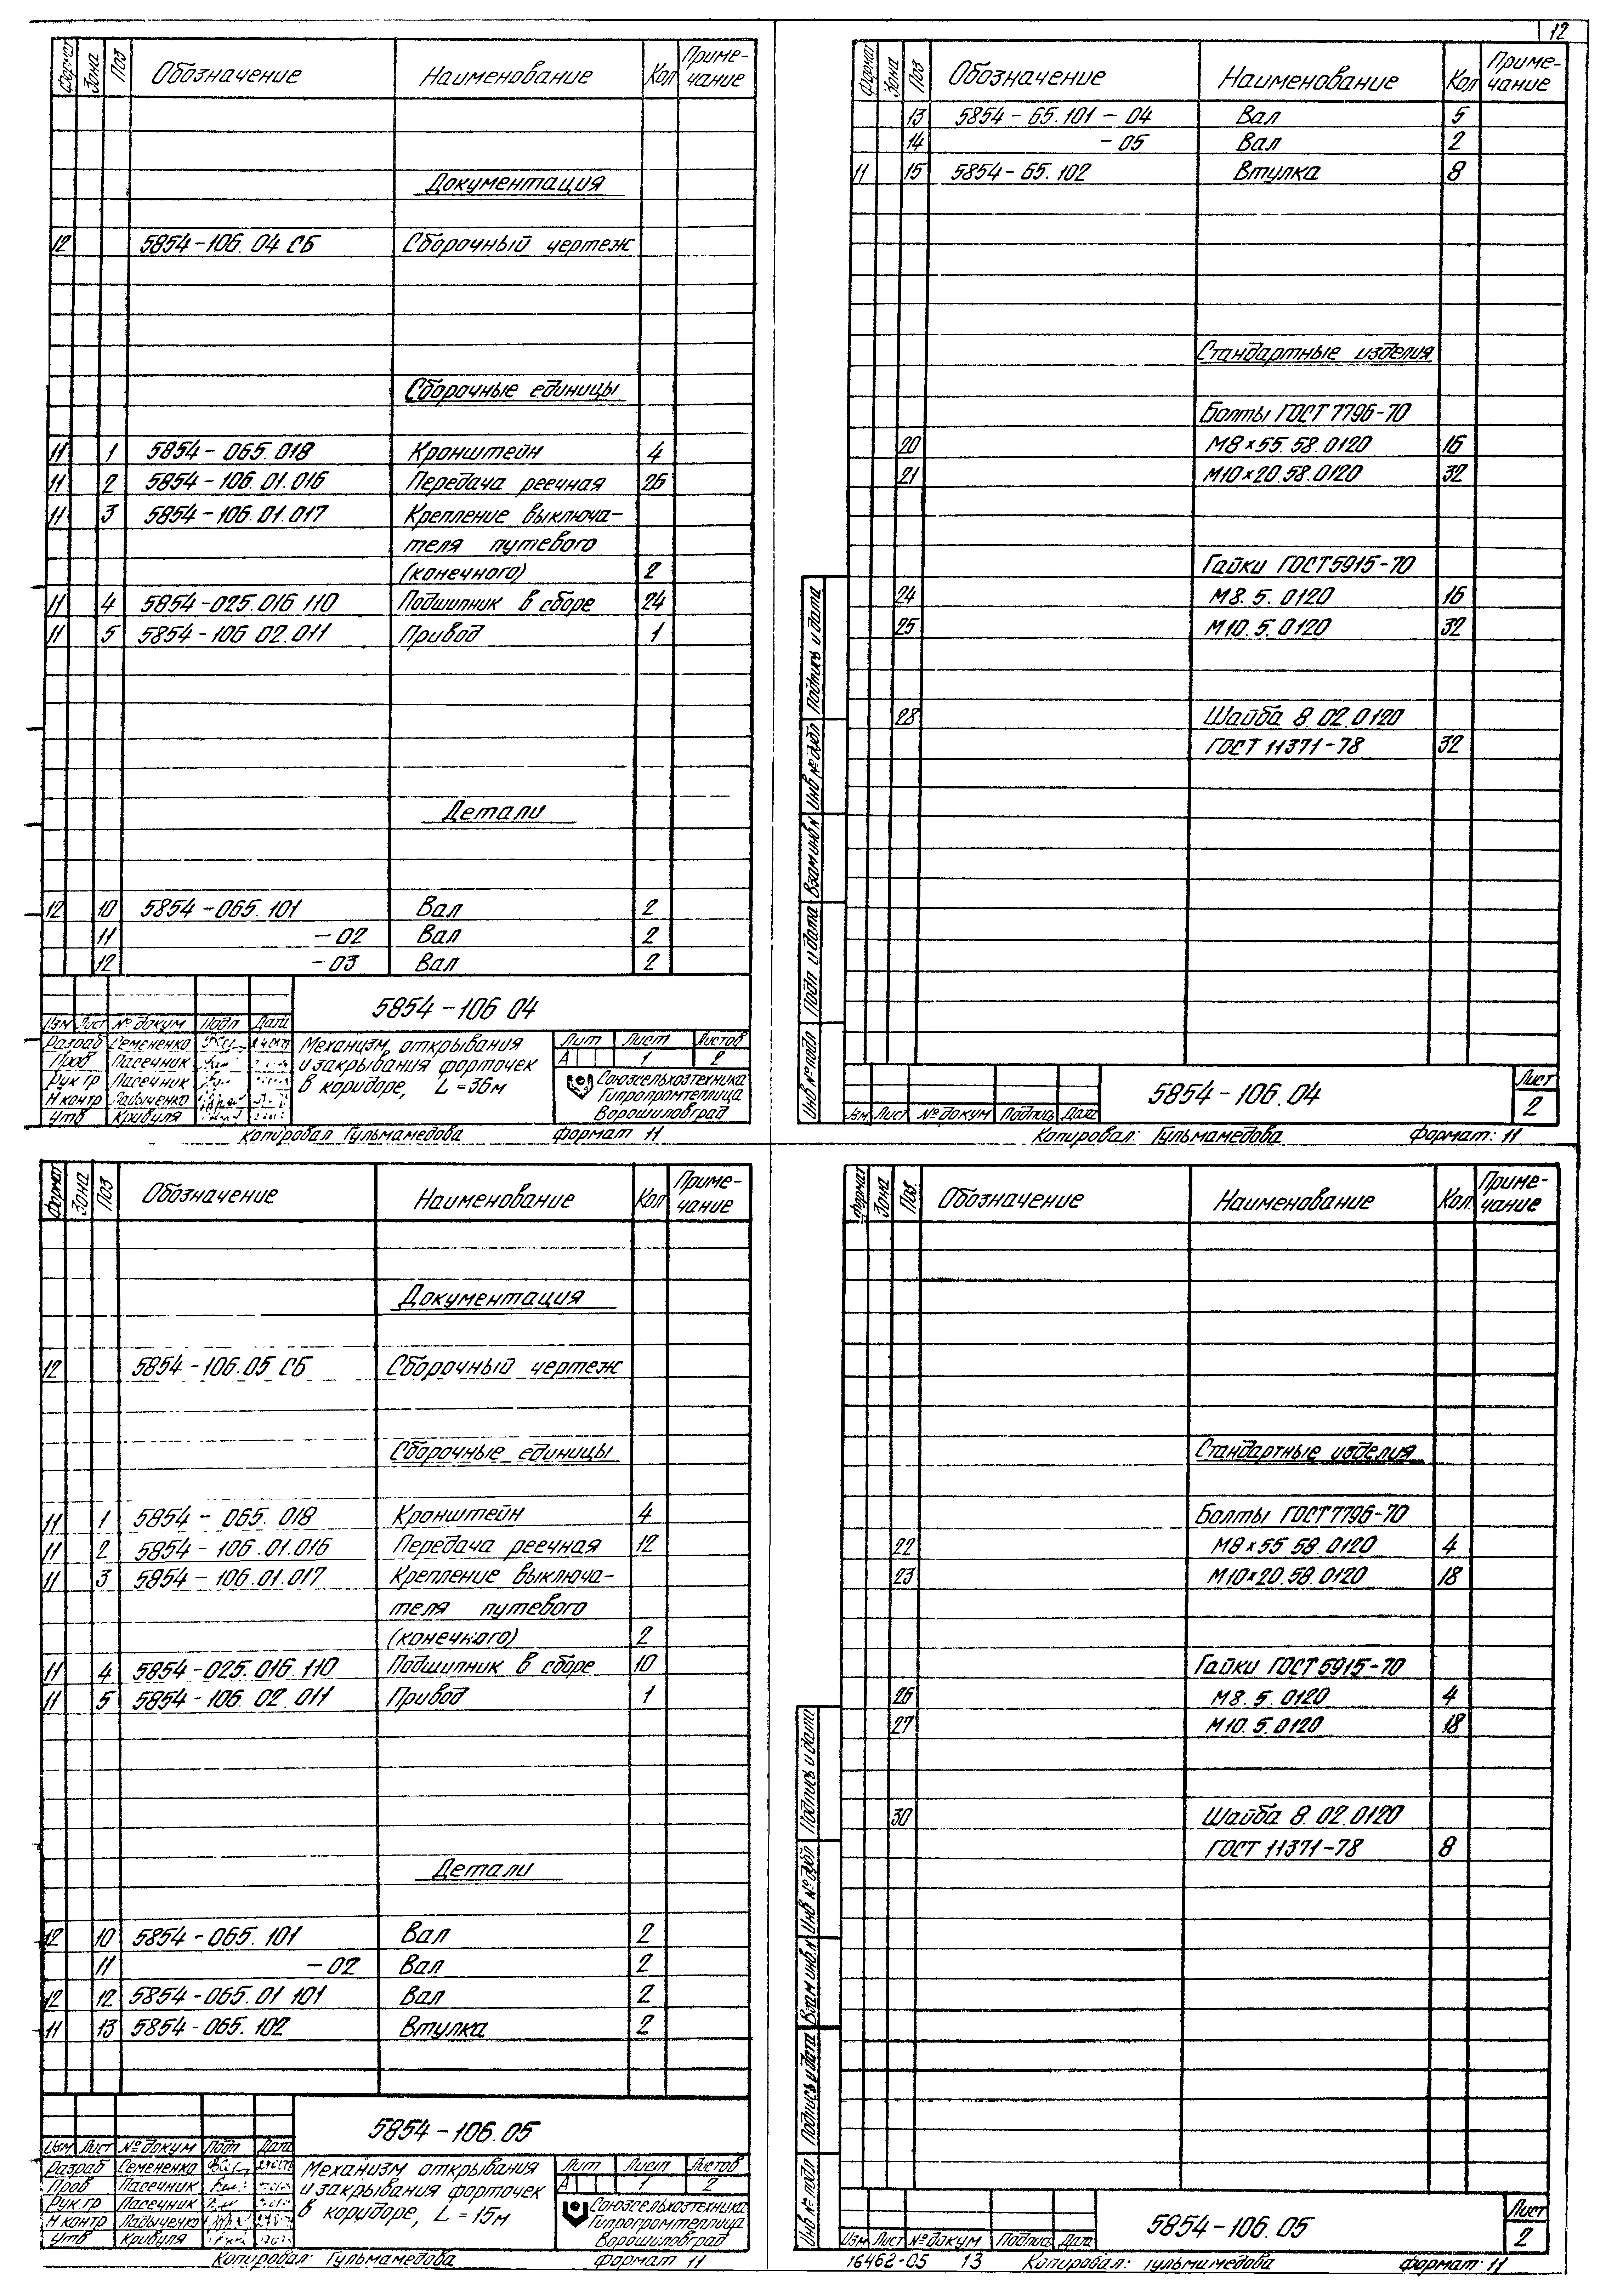 12
Формат Зона Поз Обозначение Наименование Кол Приме-
чание
Документация
12 5854-106.04 СБ Сборочный чертеж
Сборочные единицы
11 1 5854-065.018 Кронштейн 4
11 2 5854-106.01.016 Передача реечная 26
11 3 5854-106.01.017 Крепление выключа-
теля путевого
(конечного) 2
11 4 5854-025.016 110 Подшипник в сборе 24
11 5 5854-106 02.011 Привод 1
Детали
12 10 5854-065.101 Вал 2
11 -02 Вал 2
12 -03 Вал 2
5854-106 04
Изм Лист № докум Подп Дата
Разраб Семененко
Пров Пасечник
Рук гр Пасечник
Н контр Ладыченко
Утв Кривуля
Механизм открывания
и закрывания форточек
в коридоре, L=36м
Лит Лист Листов
А 1 2
Союзсельхозтехника
Гипропромтеплица
Ворошиловград
Копировал Гульмамедова Формат 11
Формат Зона Поз Обозначение Наименование Кол Приме-
чание
13 5854-65.101-04 Вал 5
14 -05 Вал 2
11 15 5854-65.102 Втулка 8
Стандартные изделия
Болты ГОСТ 7796-70
20 М8×55.58.0120 16
21 М10×20.58.0120 32
Гайки ГОСТ 5915-70
24 М8.5.0120 16
25 М10.5.0120 32
28 Шайба 8.02.0120
ГОСТ 11371-78 32
Подпись и дата
Инв № дубл
Взам инв №
Подп и дата
Инв № подл
Изм Лист № докум Подпись Дата
5854-106.04
Лист
2
Копировал: Гульмамедова Формат: 11
Формат Зона Поз Обозначение Наименование Кол Приме-
чание
Документация
12 5854-106.05 СБ Сборочный чертеж
Сборочные единицы
11 1 5854-065.018 Кронштейн 4
11 2 5854-106.01.016 Передача реечная 12
11 3 5854-106.01.017 Крепление выключа-
теля путевого
(конечного) 2
11 4 5854-025.016.110 Подшипник в сборе 10
11 5 5854-106.02.011 Привод 1
Детали
12 10 5854-065.101 Вал 2
11 -02 Вал 2
12 12 5854-065.01 101 Вал 2
11 13 5854-065.102 Втулка 2
5854-106.05
Изм Лист № докум Подп Дата
Разраб Семененко
Пров Пасечник
Рук.гр Пасечник
Н контр Ладыченко
Утв Кривуля
Механизм открывания
и закрывания форточек
в коридоре, L=15м
Лит Лист Листов
А 1 2
Союзсельхозтехника
Гипропромтеплица
Ворошиловград
Копировал: Гульмамедова Формат 11
Формат Зона Поз. Обозначение Наименование Кол. Приме-
чание
Стандартные изделия
Болты ГОСТ 7796-70
22 М8×55 58.0120 4
23 М10×20.58.0120 18
Гайки ГОСТ 5915-70
26 М8.5.0120 4
27 М10.5.0120 18
30 Шайба 8.02.0120
ГОСТ 11371-78 8
Подпись и дата
Инв № дубл
Взам инв.№
Подпись и дата
Инв № подл
Изм Лист № докум Подпись Дата
5854-106.05
Лист
2
16462-05 13 Копировал: Гульмамедова Формат: 11